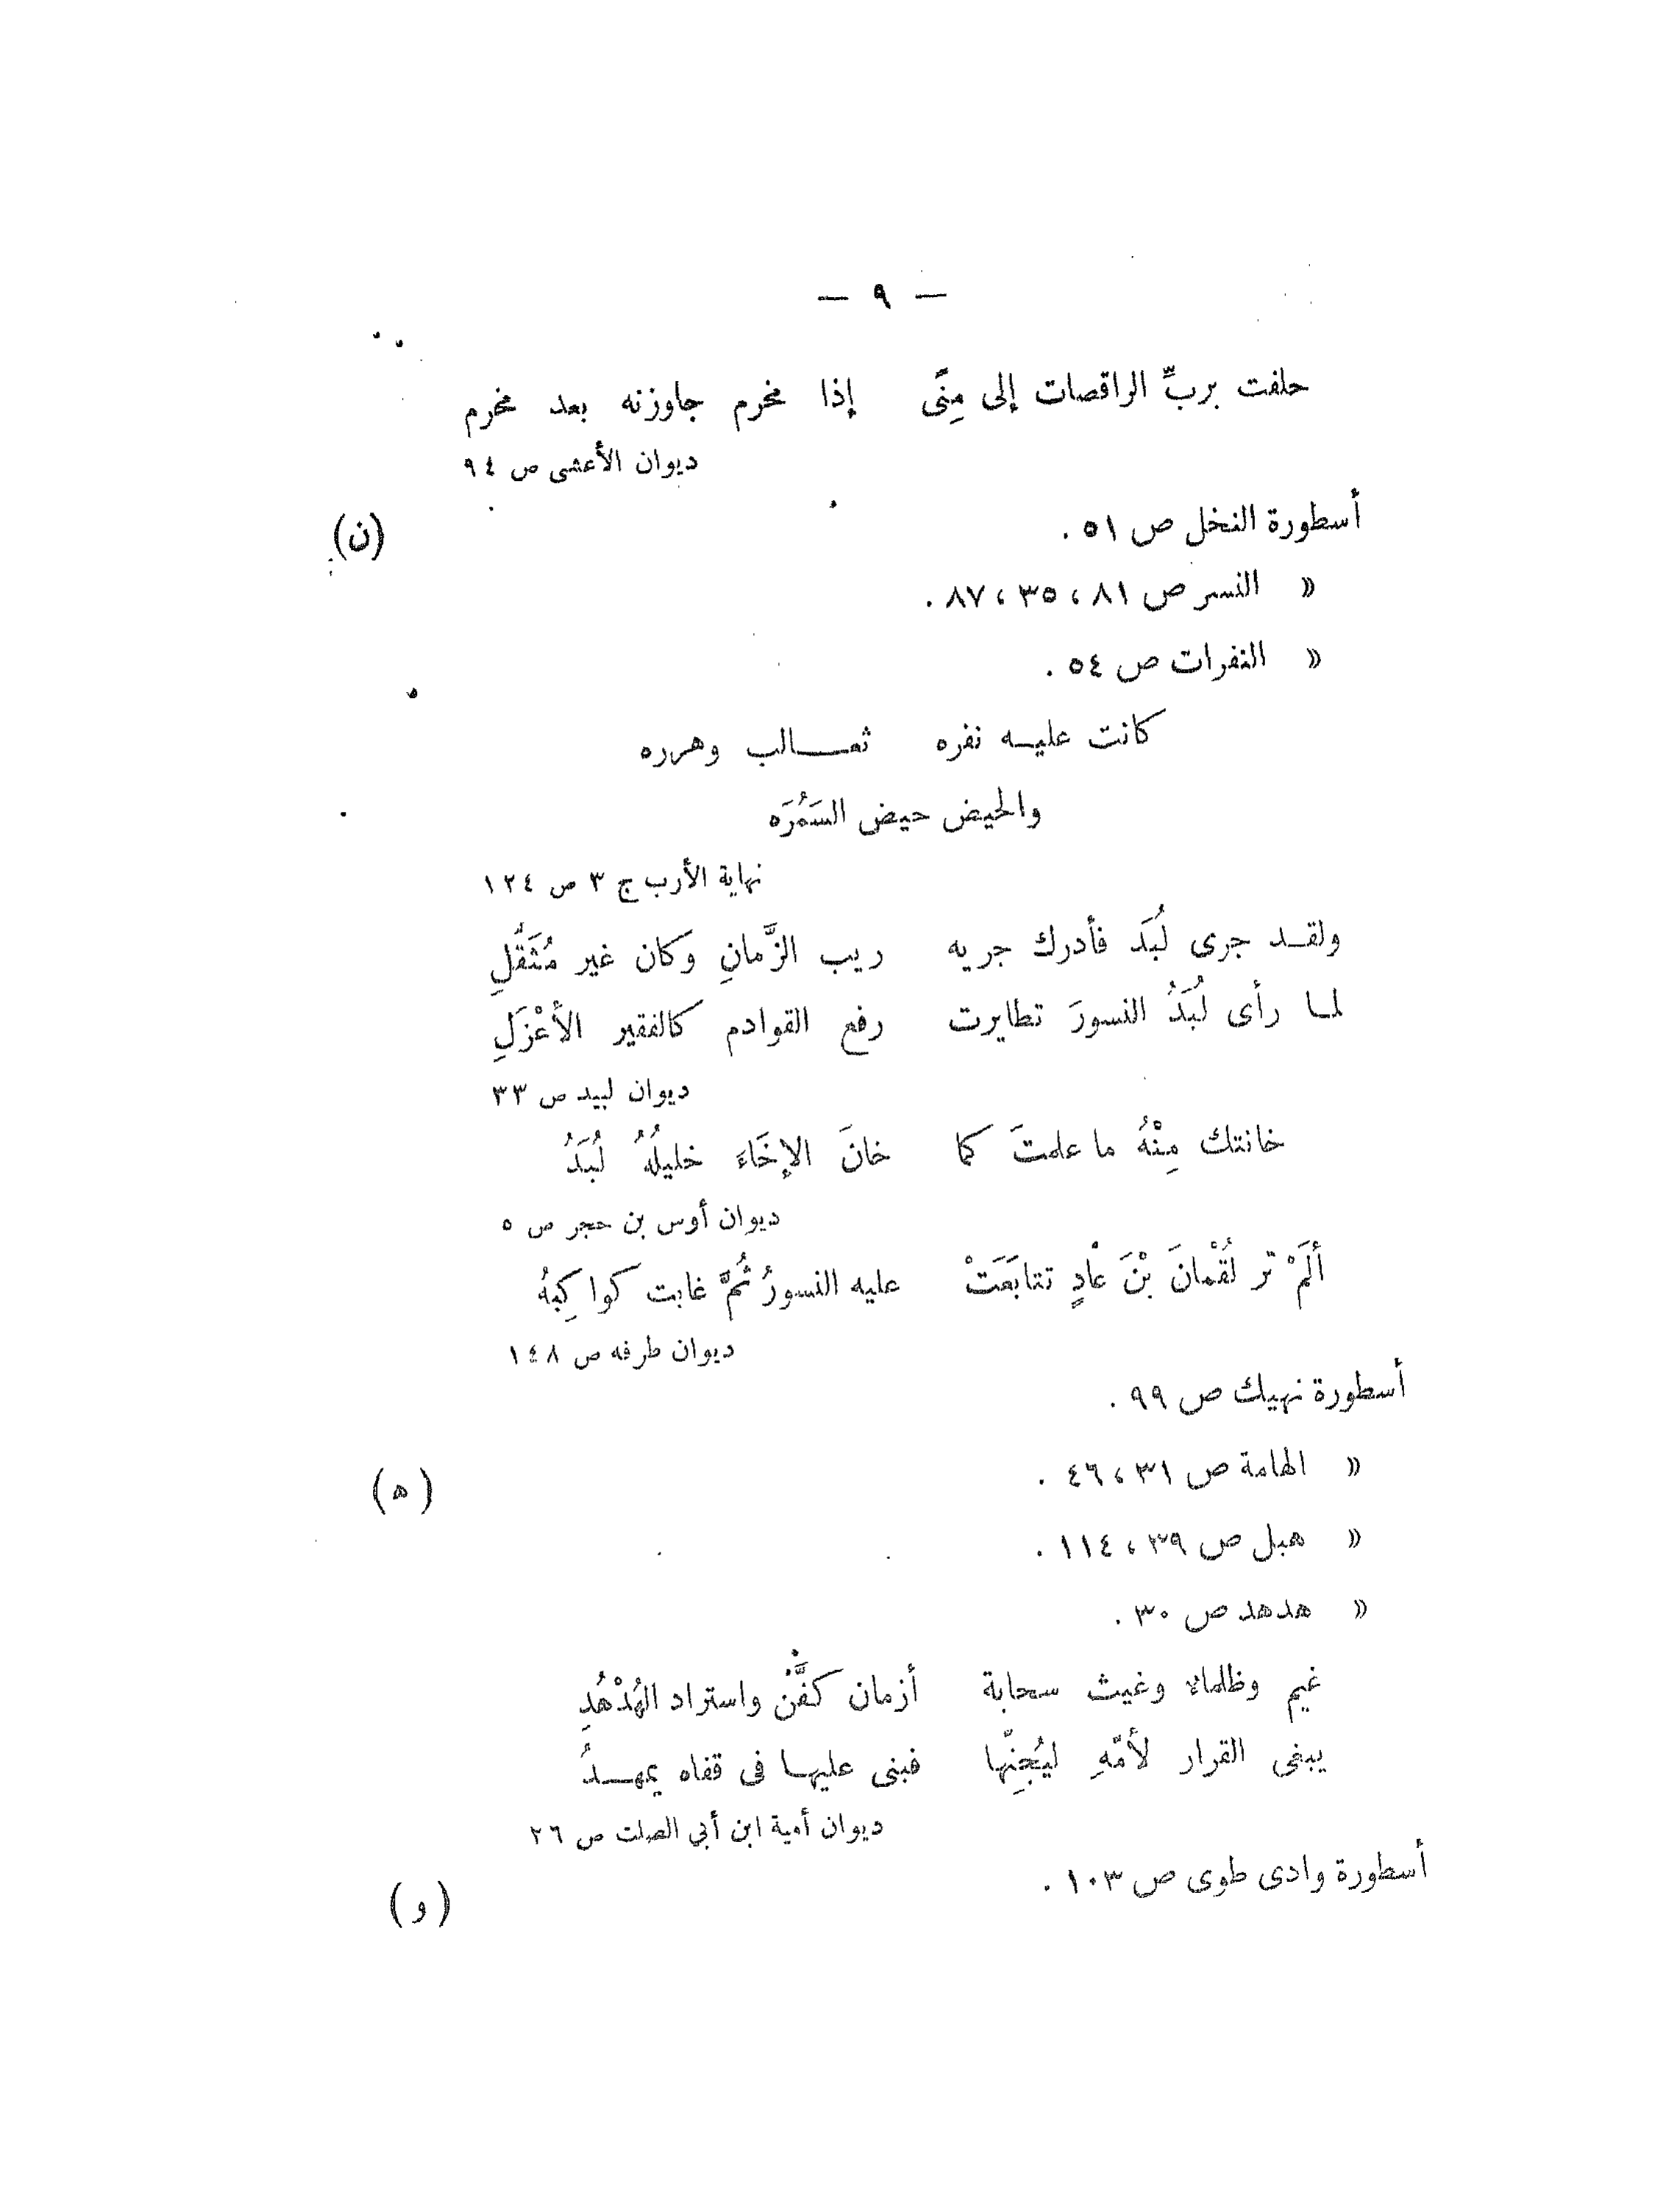 — ٩ —
حلفت بربِّ الراقصات إلى مِنًى إذا مخرم جاوزنه بعد مخرم
ديوان الأعشى ص ٩٤
(ن)
أسطورة النخل ص ٥١ .
» النسر ص ٨١ ، ٣٥ ، ٨٧ .
» النفرات ص ٥٤ .
كانت عليـه نفره ثعـــالب وهرره
والحيض حيض السَمُرَه
نهاية الأرب ج ٣ ص ١٢٤
ولقـد جرى لُبَد فأدرك جريه ريب الزَّمانِ وكان غير مُثَقَّلِ
لمـا رأى لُبَدُ النسورَ تطايرت رفع القوادم كالفقير الأعْزَلِ
ديوان لبيد ص ٣٣
خانتك مِنْهُ ما علمتَ كما خانَ الإخَاءَ خليلُهُ لُبَدُ
ديوان أوس بن حجر ص ٥
ألَمْ تر لُقْمانَ بْنَ عادٍ تتابَعَتْ عليه النسورُ ثُمَّ غابت كواكِبهُ
ديوان طرفه ص ١٤٨
أسطورة نهيك ص ٩٩ .
(ه)
» الهامة ص ٣١ ، ٤٦ .
» هبل ص ٣٩ ، ١١٤ .
» هدهد ص ٣٠ .
غيم وظلماء وغيث سحابة أزمان كفَّن واستراد الهُدْهُدِ
يبغى القرار لأمّهِ ليُجِنّها فبنى عليهـا فى قفاه يمهـدُ
ديوان أمية ابن أبي الصلت ص ٢٦
أسطورة وادى طوى ص ١٠٣ .
(و)